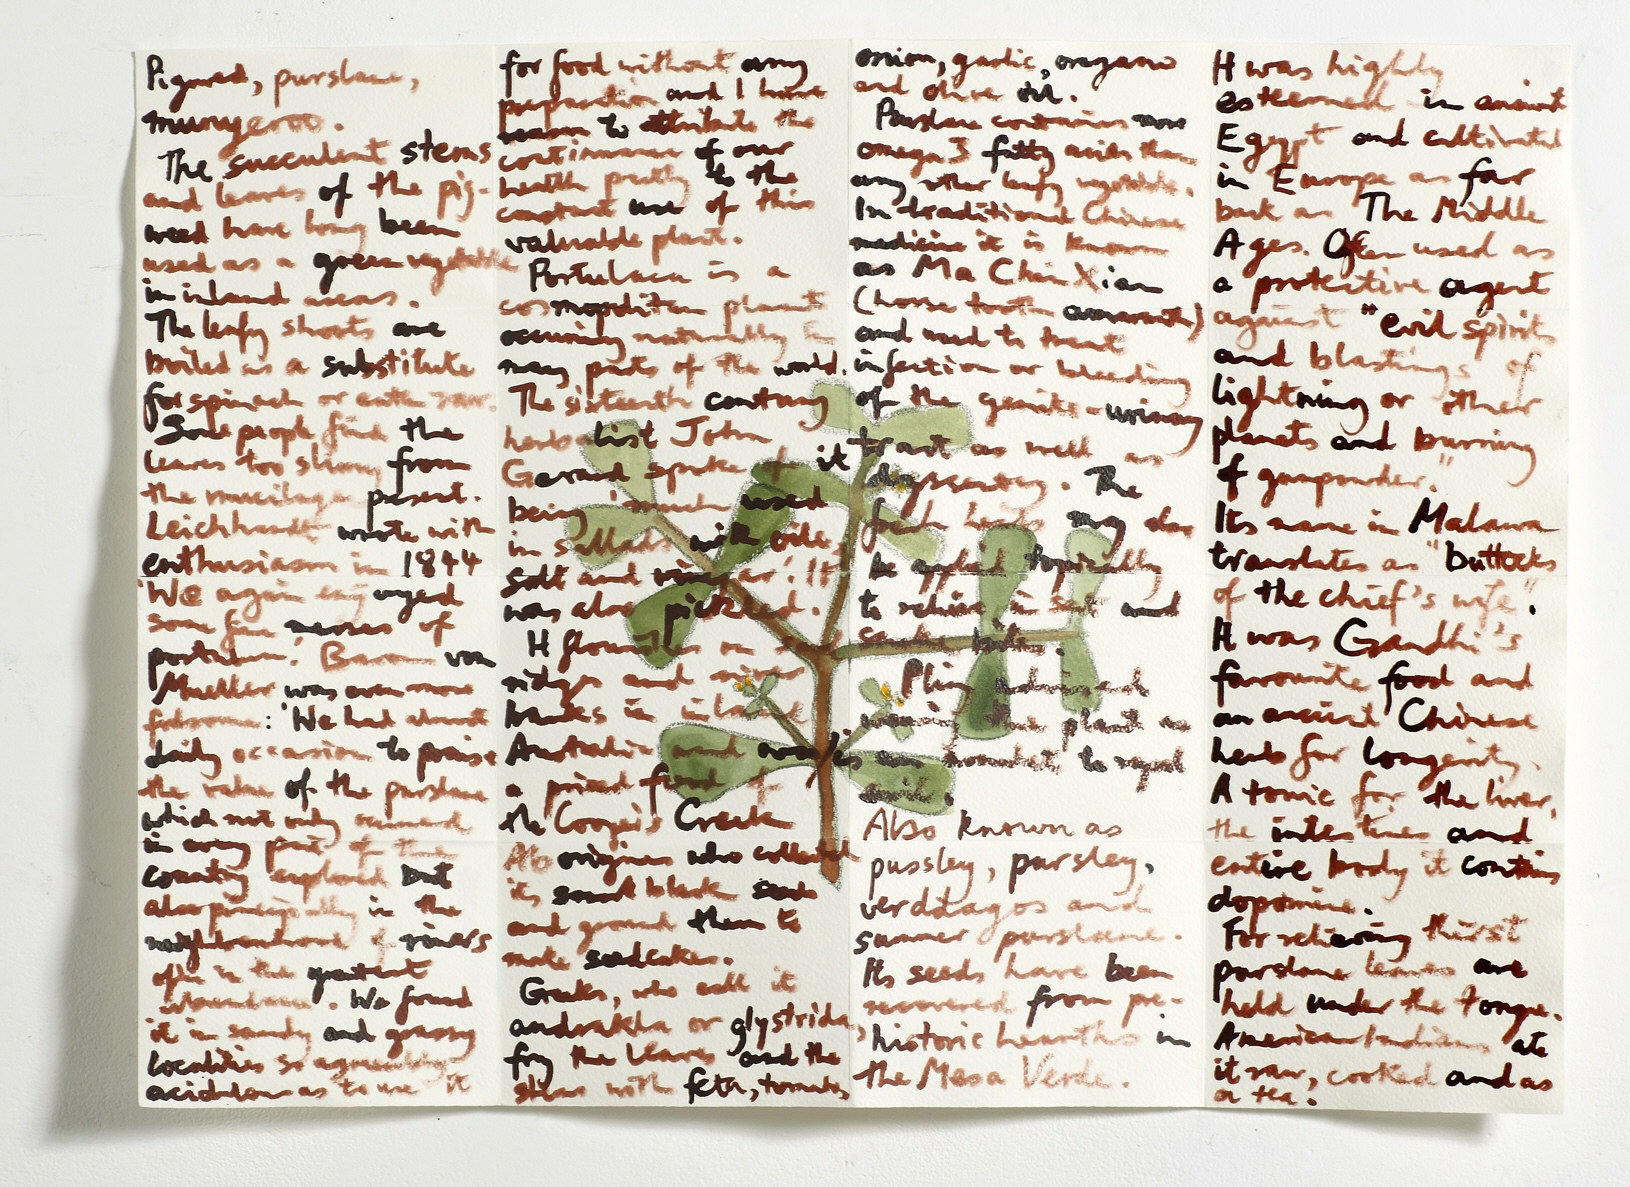 Pigweed, purslane,
munyeroo.
The succulent stems
and leaves of the pig-
weed have long been
used as a green vegetable
in inland areas.
The leafy shoots are
boiled as a substitute
for spinach or eaten raw.
Some people find the
leaves too slimy from
the mucilage present.
Leichhardt wrote with
enthusiasm in 1844
'We again enjoyed
some fine messes of
portulaca.' Baron von
Mueller was even more
fulsome: 'We had almost
daily occasion to praise
the value of the purslane
which not only occurred
in every part of the
country explored but
also principally in the
neighbourhood of rivers
often in the greatest
abundance. We found
it in sandy and grassy
localities so agreeably
acidulous as to use it
for food without any
preparation and I have
reason to attribute the
continuance of our
health partly to the
constant use of this
valuable plant.
Portulaca is a
cosmopolitan plant
occuring naturally in
many parts of the world.
The sixteenth century
herbalist John
Gerard spoke of it
being 'much used
in sallads with oile,
salt and vinegar'. It
was also pickled.
It flourishes on sand
ridges and river
banks in inland
Australia and was
a prized food of
the Cooper's Creek
Aborigines who collected
its small black seeds
and ground them to
make seedcakes.
Greeks, who call it
andrakla or glystrida,
fry the leaves and the
stems with feta, tomato,
onion, garlic, oregano
and olive oil.
Purslane contains more
omega 3 fatty acids than
any other leafy vegetable.
In traditional Chinese
medicine it is known
as Ma Chin Xian
(horse tooth amaranth)
and used to treat
infection or bleeding
of the genito-urinary
tract as well as
dysentery. The
fresh herb may also
be applied topically
to relieve insect and
snake bites.
Pliny advised
wearing the plant as
an amulet to repel
evil.
Also known as
pussley, pursley,
verdolagos and
summer purslane.
Its seeds have been
recovered from pre-
historic hearths in
the Mesa Verde.
It was highly
esteemed in ancient
Egypt and cultivated
in Europe as far
back as The Middle
Ages. Often used as
a protective agent
against "evil spirits
and blastings of
lightning or other
planets and burning
of gunpowder."
Its name in Malawa
translates as "buttocks
of the chief's wife".
It was Gandhi's
favourite food and
an ancient Chinese
herb for longevity.
A tonic for the liver,
the intestines and
entire body it contains
dopamine.
For relieving thirst
purslane leaves are
held under the tongue.
American Indians ate
it raw, cooked and as
a tea.